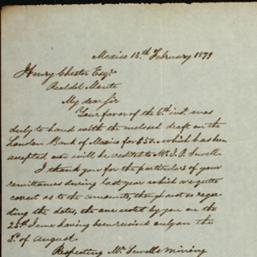 Mexico 12th February 1879
Henry Chester Esqre
Real del Monte
My dear Sir
Your favor of the 6th inst. was
duly to hand with the inclosed draft on the
London Bank of Mexico for $50. which has been
accepted and will be credited to Mr. J. F. Sewell.
I thank you for the particulars of your
remittances during last year which we quite
correct as to the amounts, though not as regar-
ding the dates, the one noted by you on the
28th June having been received only on the
3d of August.
Respecting Mr. Sewell's mining